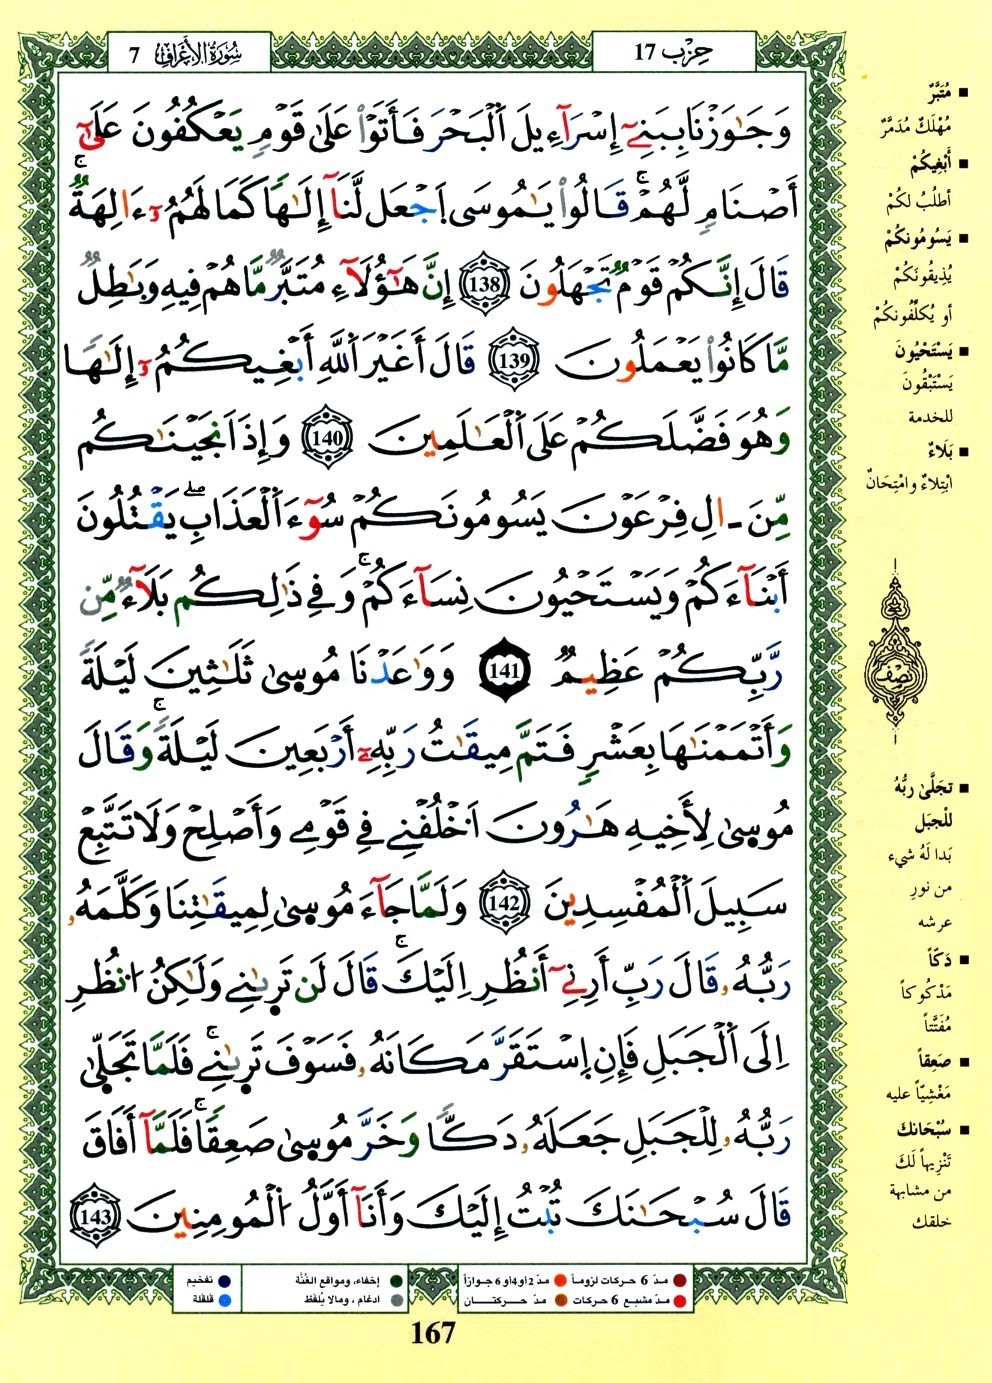 حِزْب 17
سُورَةُ الأَعْرَافِ 7
وَجَٰوَزْنَا بِبَنِےٓ إِسْرَآءِيلَ اَ۬لْبَحْرَ فَأَتَوْاْ عَلَىٰ قَوْمٖ يَعْكُفُونَ عَلَىٰٓ
أَصْنَامٖ لَّهُمْۚ قَالُواْ يَٰمُوسَى اَ۪جْعَل لَّنَآ إِلَٰهاٗ كَمَا لَهُمُۥٓ ءَالِهَةٞۚ
قَالَ إِنَّكُمْ قَوْمٞ تَجْهَلُونَ 138 إِنَّ هَٰٓؤُلَآءِ مُتَبَّرٞ مَّا هُمْ فِيهِ وَبَٰطِلٞ
مَّا كَانُواْ يَعْمَلُونَ 139 قَالَ أَغَيْرَ اَ۬للَّهِ أَبْغِيكُمُۥٓ إِلَٰهاٗ
وَهُوَ فَضَّلَكُمْ عَلَى اَ۬لْعَٰلَمِينَ 140 وَإِذَ اَنجَيْنَٰكُم
مِّنَ ـ الِ فِرْعَوْنَ يَسُومُونَكُمْ سُوٓءَ اَ۬لْعَذَابِۖ يَقْتُلُونَ
أَبْنَآءَكُمْ وَيَسْتَحْيُونَ نِسَآءَكُمْۚ وَفِے ذَٰلِكُم بَلَآءٞ مِّن
رَّبِّكُمْ عَظِيمٞ 141 وَوَٰعَدْنَا مُوسَىٰ ثَلَٰثِينَ لَيْلَةٗ
وَأَتْمَمْنَٰهَا بِعَشْرٖ فَتَمَّ مِيقَٰتُ رَبِّهِۦٓ أَرْبَعِينَ لَيْلَةٗۚ وَقَالَ
مُوسَىٰ لِأَخِيهِ هَٰرُونَ اَ۟خْلُفْنِے فِے قَوْمِے وَأَصْلِحْ وَلَا تَتَّبِعْ
سَبِيلَ اَ۬لْمُفْسِدِينَ 142 وَلَمَّا جَآءَ مُوسَىٰ لِمِيقَٰتِنَا وَكَلَّمَهُۥ
رَبُّهُۥ قَالَ رَبِّ أَرِنِےٓ أَنظُرِ اِلَيْكَۚ قَالَ لَن تَر۪ىٰنِے وَلَٰكِنُ اُ۟نظُرِ
اِلَى اَ۬لْجَبَلِ فَإِنِ اِ۪سْتَقَرَّ مَكَانَهُۥ فَسَوْفَ تَر۪ىٰنِےۚ فَلَمَّا تَجَلَّىٰ
رَبُّهُۥ لِلْجَبَلِ جَعَلَهُۥ دَكّاٗ وَخَرَّ مُوسَىٰ صَعِقاٗۚ فَلَمَّآ أَفَاقَ
قَالَ سُبْحَٰنَكَ تُبْتُ إِلَيْكَ وَأَنَآ أَوَّلُ اُ۬لْمُومِنِينَ 143
■ مُتَبَّرٌ
مُهْلَكٌ مُدَمَّرٌ
■ أَبْغِيكُمْ
أَطلُبُ لكُمْ
■ يَسُومُونكُمْ
يُذِيقُونَكُمْ
أو يُكلِّفُونكُمْ
■ يَسْتَحْيُونَ
يَسْتَبْقُونَ
للخدمة
■ بَلَاءٌ
ابْتِلاءٌ وامْتِحَانٌ
نصْف
■ تجَلَّىٰ ربُّهُ
للْجبَل
بَدا لَهُ شيء
من نورِ
عرشه
■ دَكّاً
مَدْكُوكاً
مُفَتَّتاً
■ صَعِقاً
مَغْشِيّاً عليه
■ سُبْحَانك
تَنْزِيهاً لَكَ
من مشابهة
خلقك
مدّ 6 حركات لزوماً مدّ 2 أو 4 أو 6 جوازاً إخفاء، ومواقع الغُنَّة تفخيم
مدّ مشبع 6 حركات مدّ حـركتـــان ادغام، ومالا يُلفظ قلقلة
167